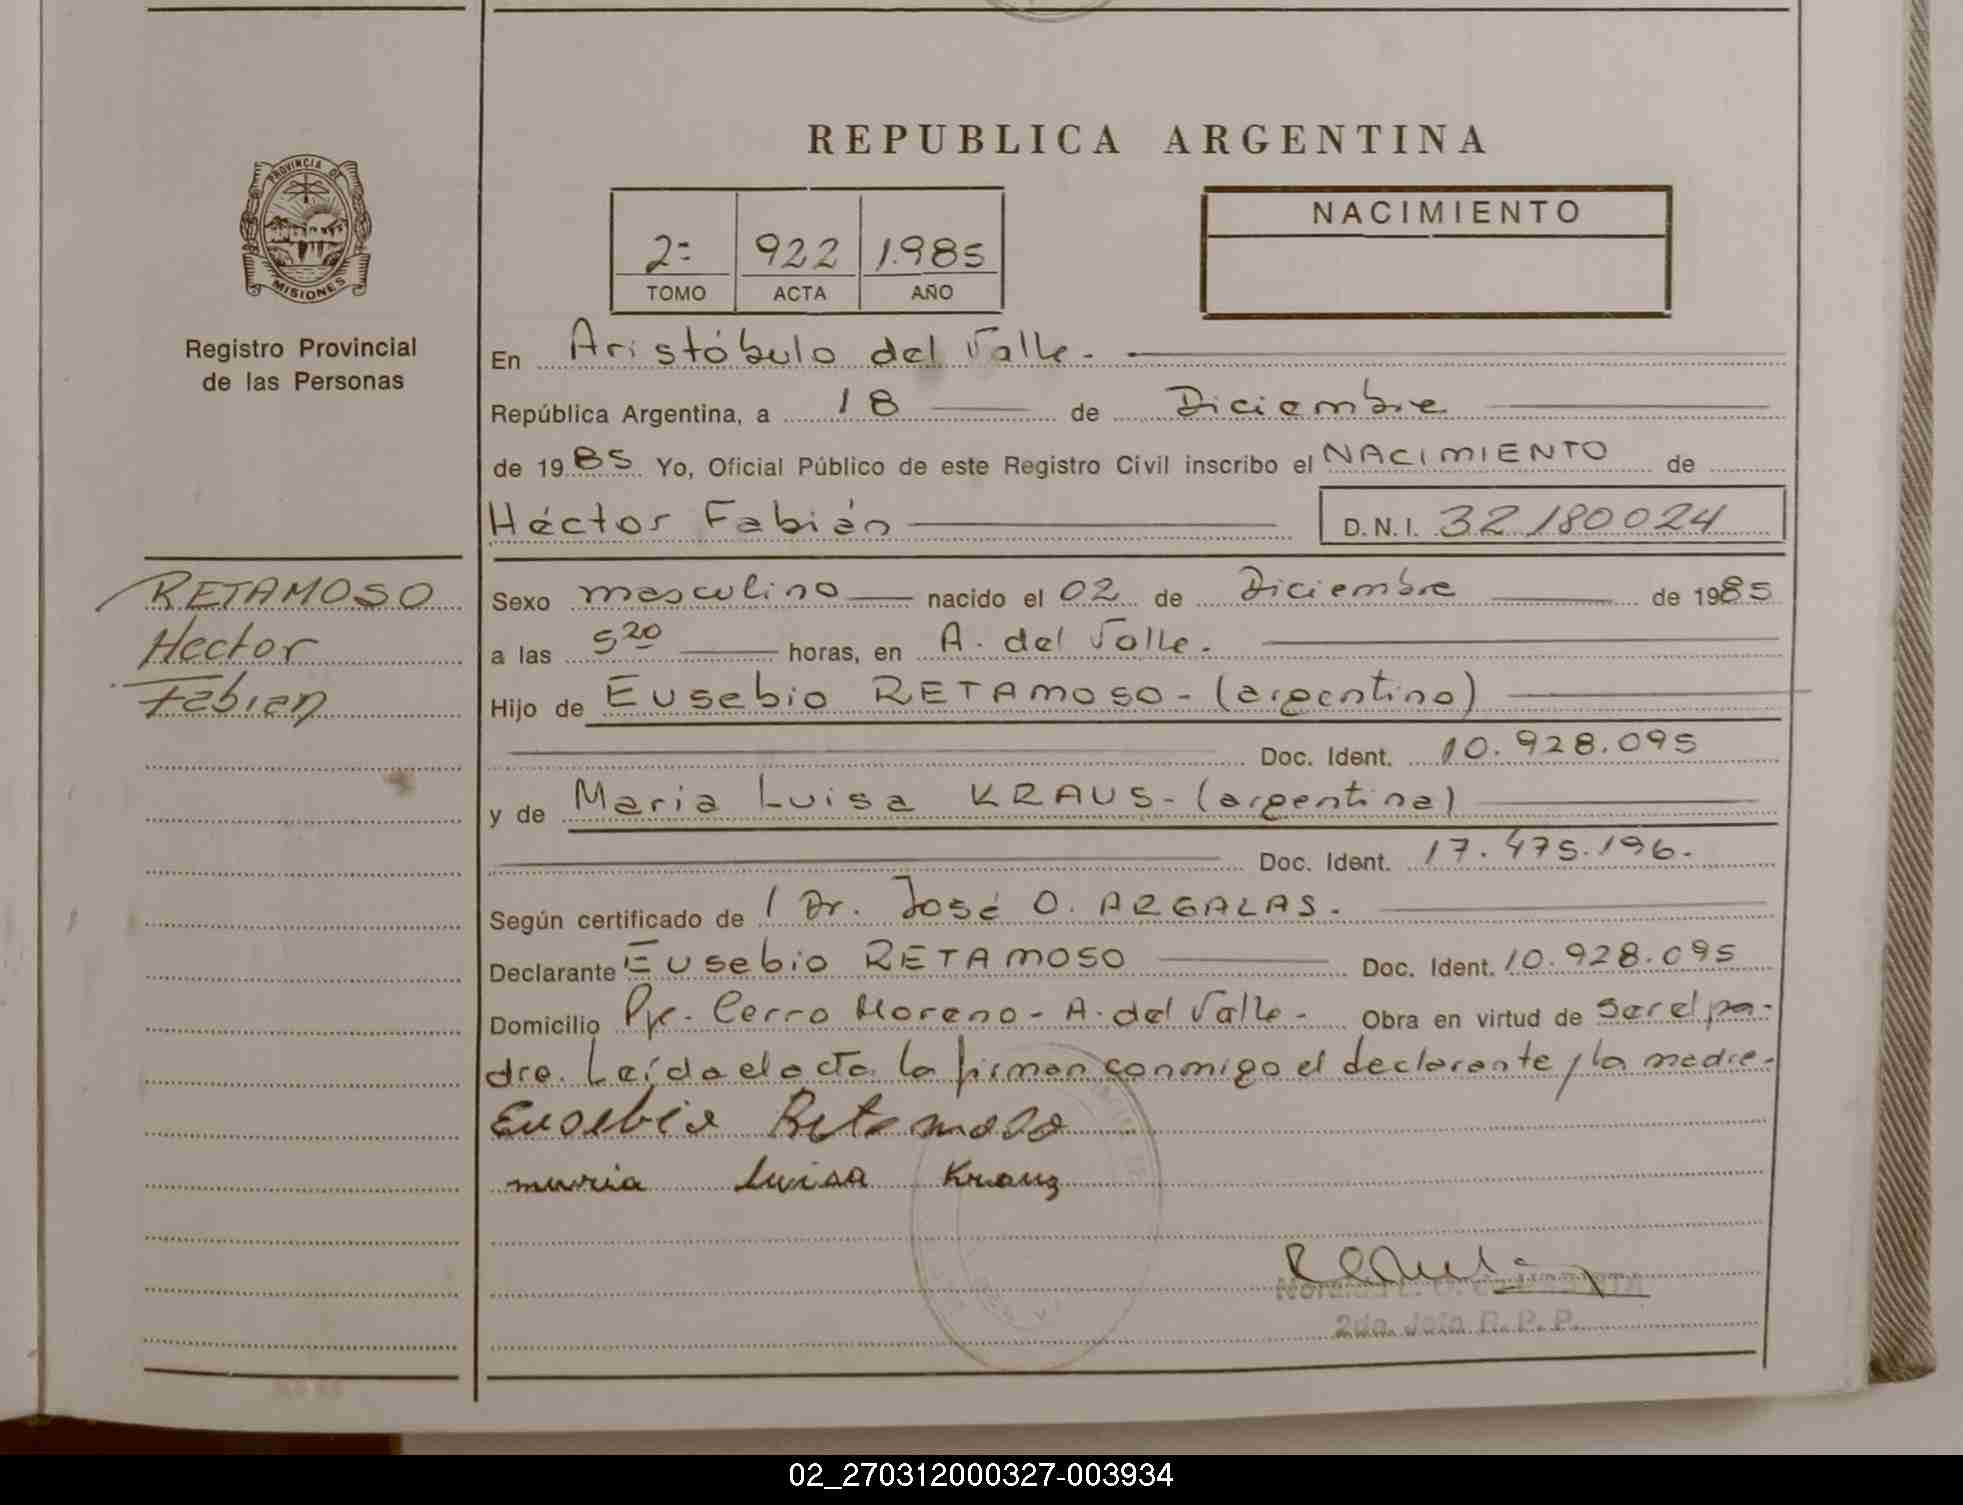 REPUBLICA ARGENTINA
PROVINCIA DE
MISIONES
Registro Provincial
de las Personas
2= 922 1.985
TOMO ACTA AÑO
NACIMIENTO
En Aristóbulo del Valle.-
República Argentina, a 18 de Diciembre
de 1985 Yo, Oficial Público de este Registro Civil inscribo el NACIMIENTO de
Héctor Fabián D.N.I. 32180024
RETAMOSO
Hector
Fabian
Sexo masculino nacido el 02 de Diciembre de 1985
a las 5 20 horas, en A. del Valle.
Hijo de Eusebio RETAMOSO - (argentino)
Doc. Ident. 10.928.095
y de Maria Luisa KRAUS - (argentina)
Doc. Ident. 17.475.196.
Según certificado de / Dr. José O. ARGALAS.
Declarante Eusebio RETAMOSO Doc. Ident. 10.928.095
Domicilio Pje. Cerro Moreno - A. del Valle - Obra en virtud de ser el pa-
dre. Leída el acta la firman conmigo el declarante y la madre.
Eusebio Retamoso
maria luisa Kraus
2da. Jefa R. P. P.
02_270312000327-003934